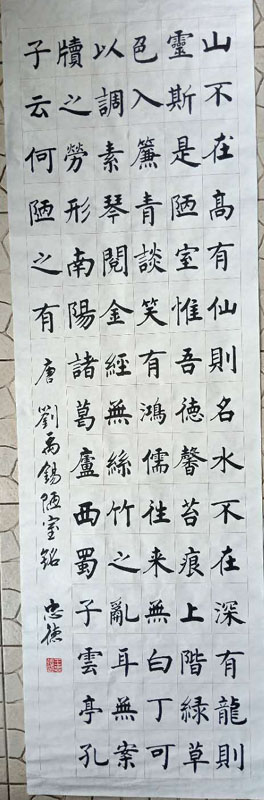 山不在高有仙則名水不在深有龍則
靈斯是陋室惟吾德馨苔痕上階緑草
色入簾青談笑有鴻儒往来無白丁可
以調素琴閱金經無絲竹之亂耳無案
牘之勞形南陽諸葛廬西蜀子雲亭孔
子云何陋之有 唐 劉禹錫陋室銘 忠德